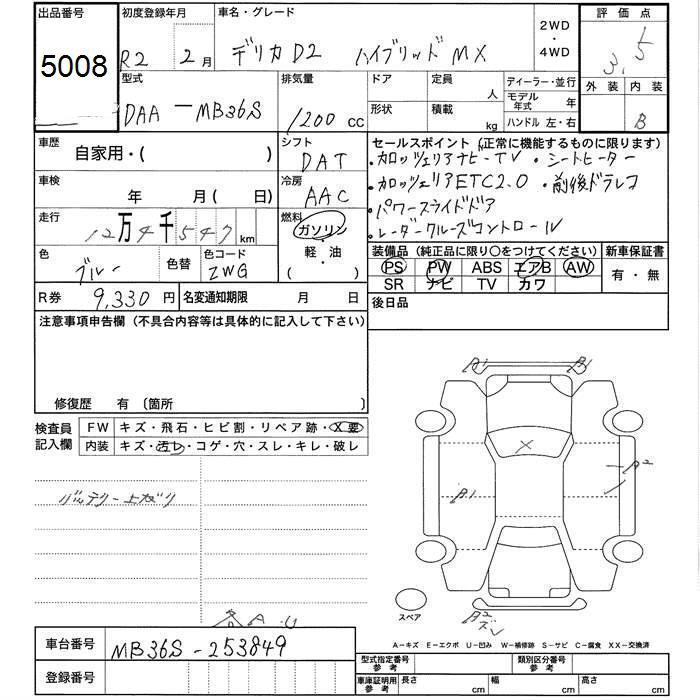 出品番号
5008
初度登録年月
R2 2月
車名・グレード
デリカD2 ハイブリッドMX
2WD
・
4WD
評価点
3.5
外装 内装
B
型式
DAA-MB36S
排気量
1200 cc
ドア
形状
定員
人
積載
kg
ディーラー・並行
モデル年式 年
ハンドル 左・右
車歴
自家用・( )
シフト
DAT
車検
年 月( 日)
冷房
AAC
走行
12万4千547km
燃料
ガソリン
・
軽・油
( )
色
ブルー
色替
色コード
ZWG
R券 9,330円
名変通知期限 月 日
セールスポイント (正常に機能するものに限ります)
・カロッツェリアナビ・TV ・シートヒーター
・カロッツェリアETC2.0 ・前後ドラレコ
・パワースライドドア
・レーダークルーズコントロール
装備品 (純正品に限り○をつけてください)
PS PW ABS エアB AW
SR ナビ TV カワ
新車保証書
有・無
後日品
注意事項申告欄 (不具合内容等は具体的に記入して下さい)
修復歴 有 〔箇所 〕
検査員記入欄
FW キズ・飛石・ヒビ割・リペア跡・X要
内装 キズ・汚レ・コゲ・穴・スレ・キレ・破レ
バッテリー上がり
各A・U
A1
X
B1
B2
スペア
A-キズ E-エクボ U-凹み W-補修跡 S-サビ C-腐食 XX-交換済
車台番号 MB36S-253849
登録番号
型式指定番号 参考
類別区分番号 参考
車庫証明用 参考
長さ cm
幅 cm
高さ cm